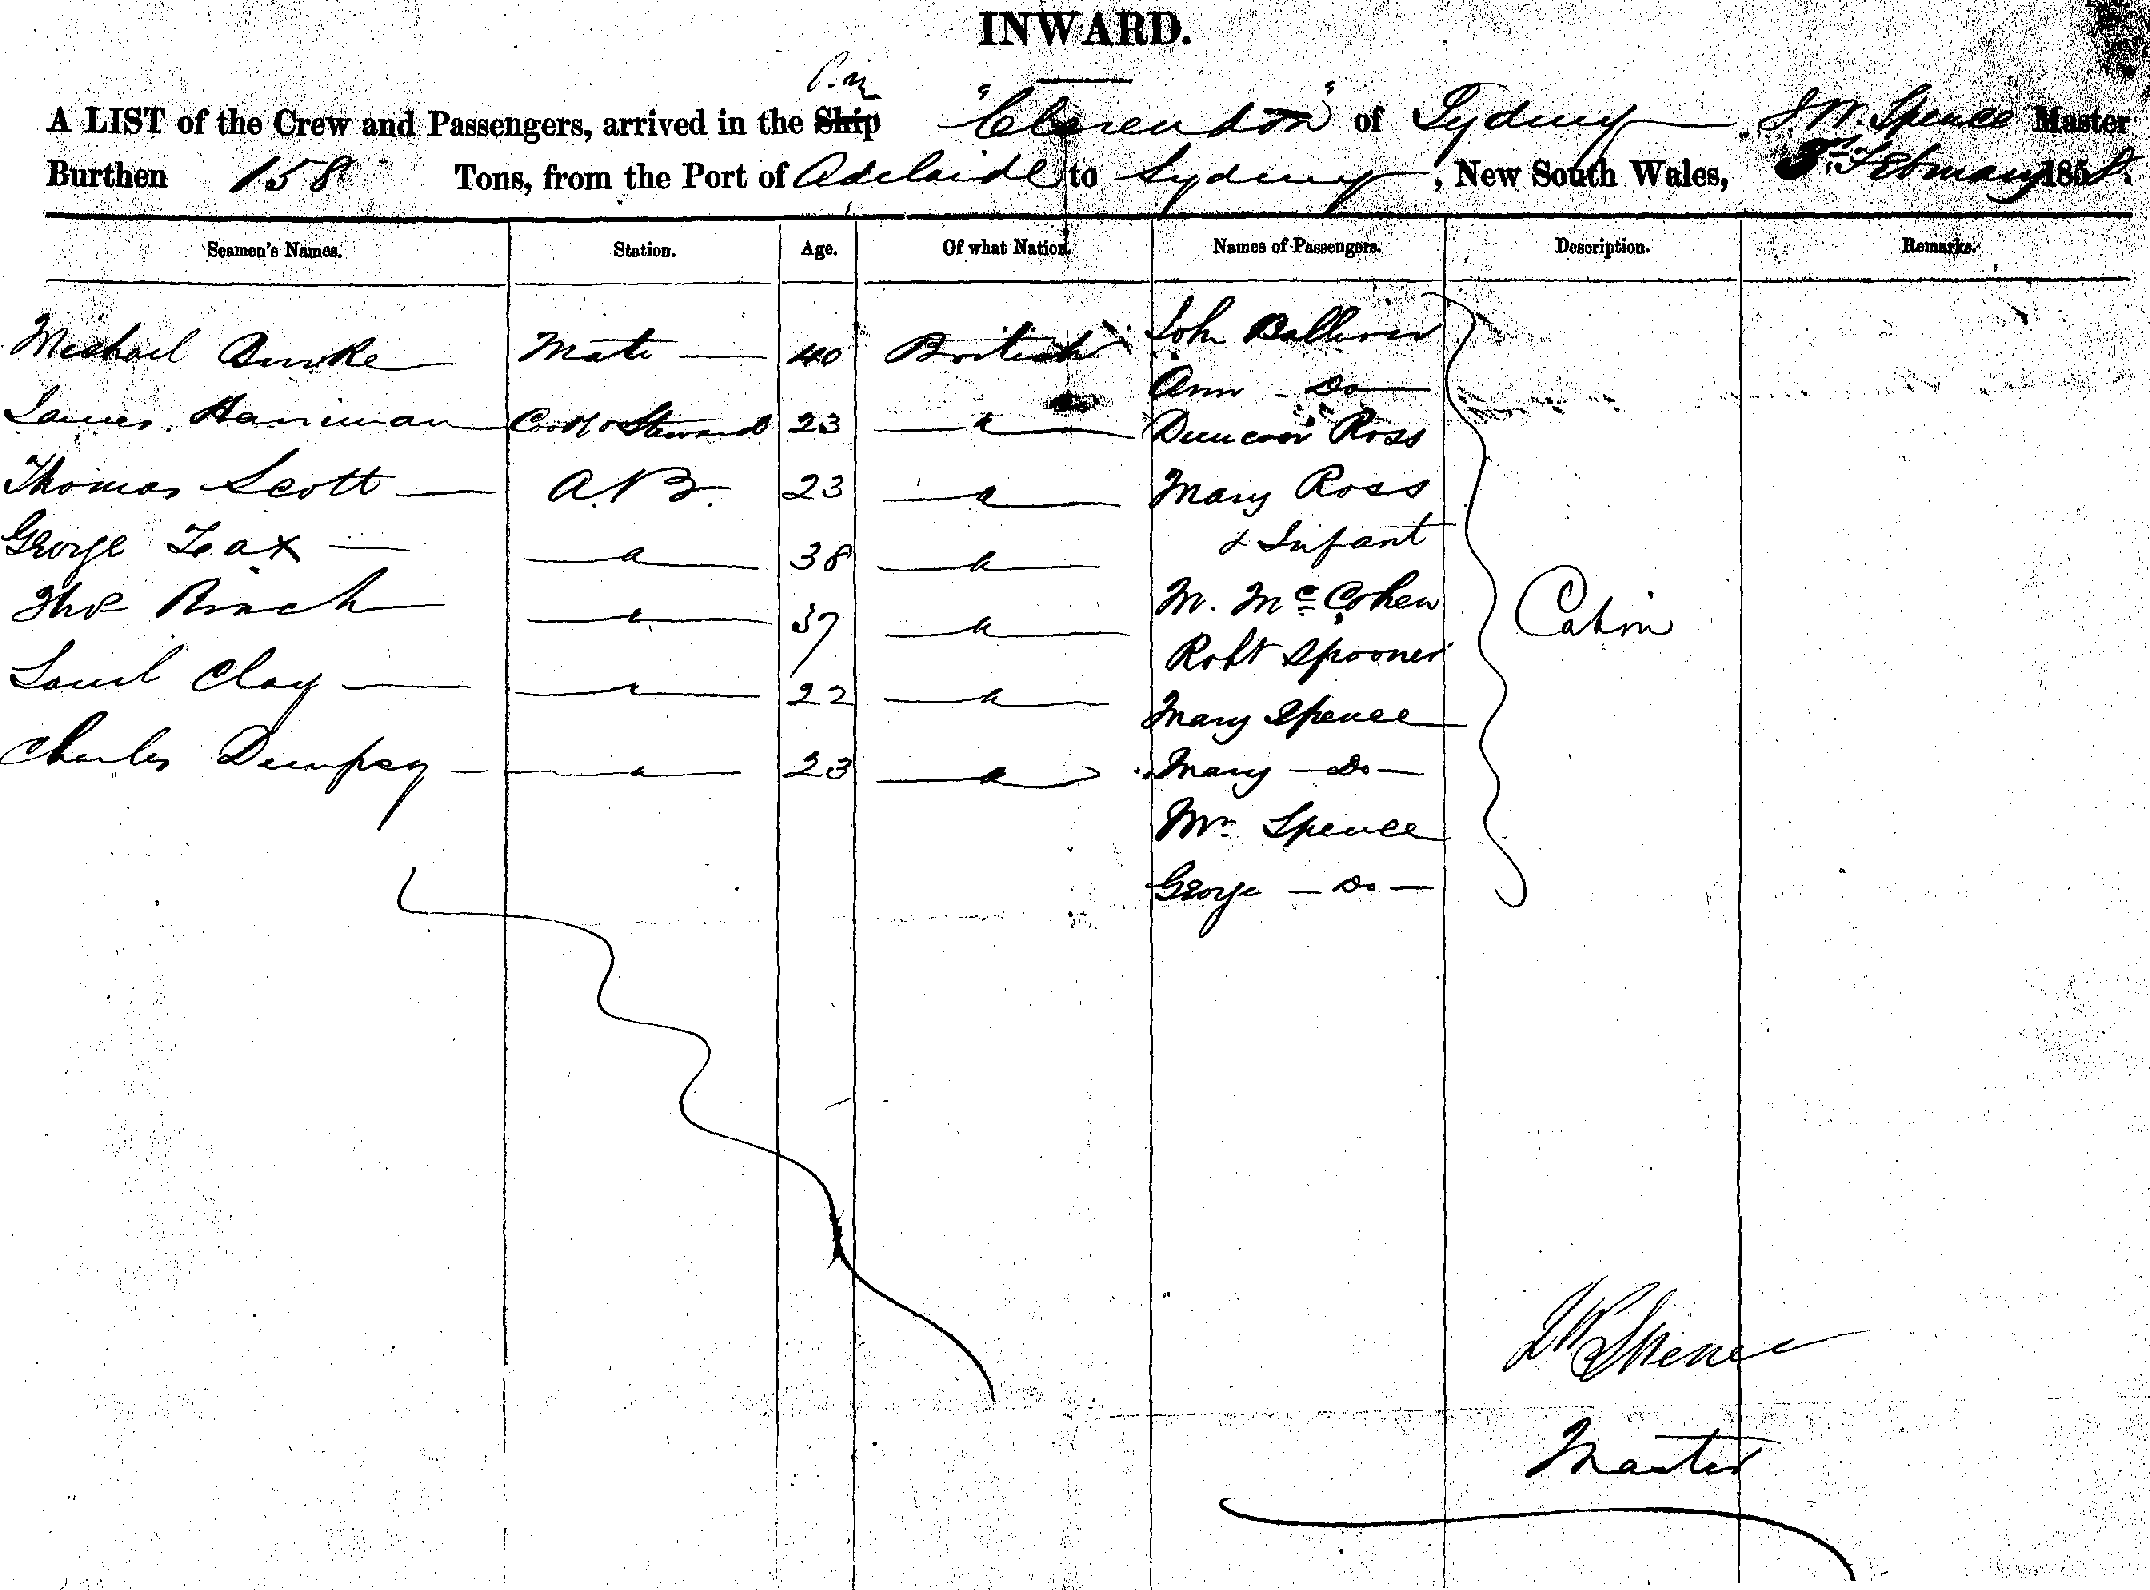 INWARD.
A LIST of the Crew and Passengers, arrived in the Ship "Clarendon" of Sydney J W. Spence Master
Burthen 158 Tons, from the Port of Adelaide to Sydney, New South Wales, 5th February 1858.
Seamen's Names. Station. Age. Of what Nation. Names of Passengers. Description. Remarks.
Michael Burke Mate 40 British John
Ann Do
James Harriman Cook & Steward 23 " Duncan Ross
Thomas Scott A.B. 23 " Mary Ross
& Infant
George " 38 "
Thos " 37 " M. Mc Cohen Cabin
Robt Spooner
Saml Clay " 22 " Mary Spence
Charles Dempsy " 23 " Mary Do
Wm Spence
George Do
JW Spence
Master